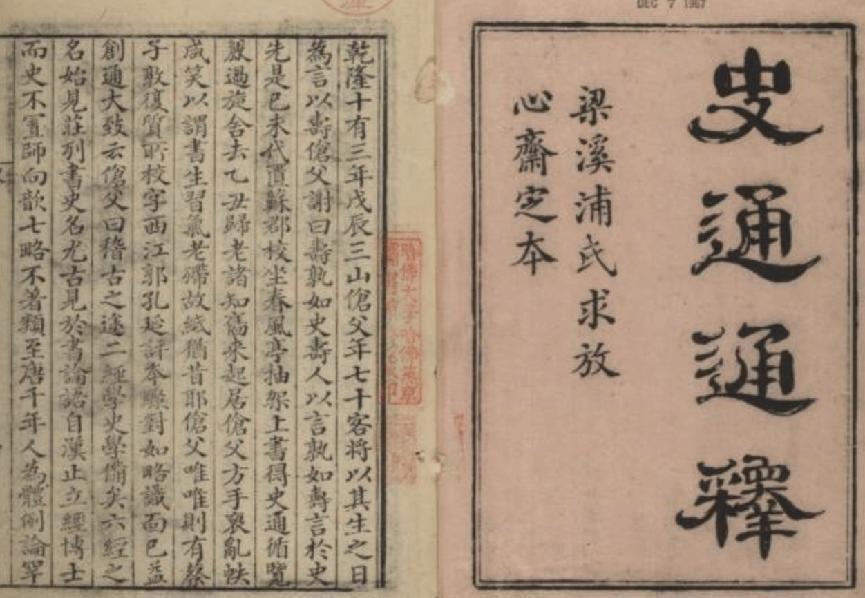 DEC 7 1967
史通通釋
梁溪浦氏求放
心齋定本
乾隆十有三年戊辰三山傖父年七十客將以其生之日
為言以壽傖父謝曰壽孰如史壽人以言孰如壽言於史
先是己未代匱蘇郡校坐春風亭抽架上書得史通循覽
過旋舍去乙丑歸老諸知舊來起居傖父方手裒亂帙
咸笑以謂書生習氣老滯故紙猶昔耶傖父唯唯則有蔡
子敦復質所校字西江郭孔延評本對如略識面已益
創通大致云傖父曰稽古之途二經學史學備矣六經之
名始見莊列書史名尤古見於書論語自漢止立經博士
而史不置師向歆七略不著類至唐千年人為體例論罕